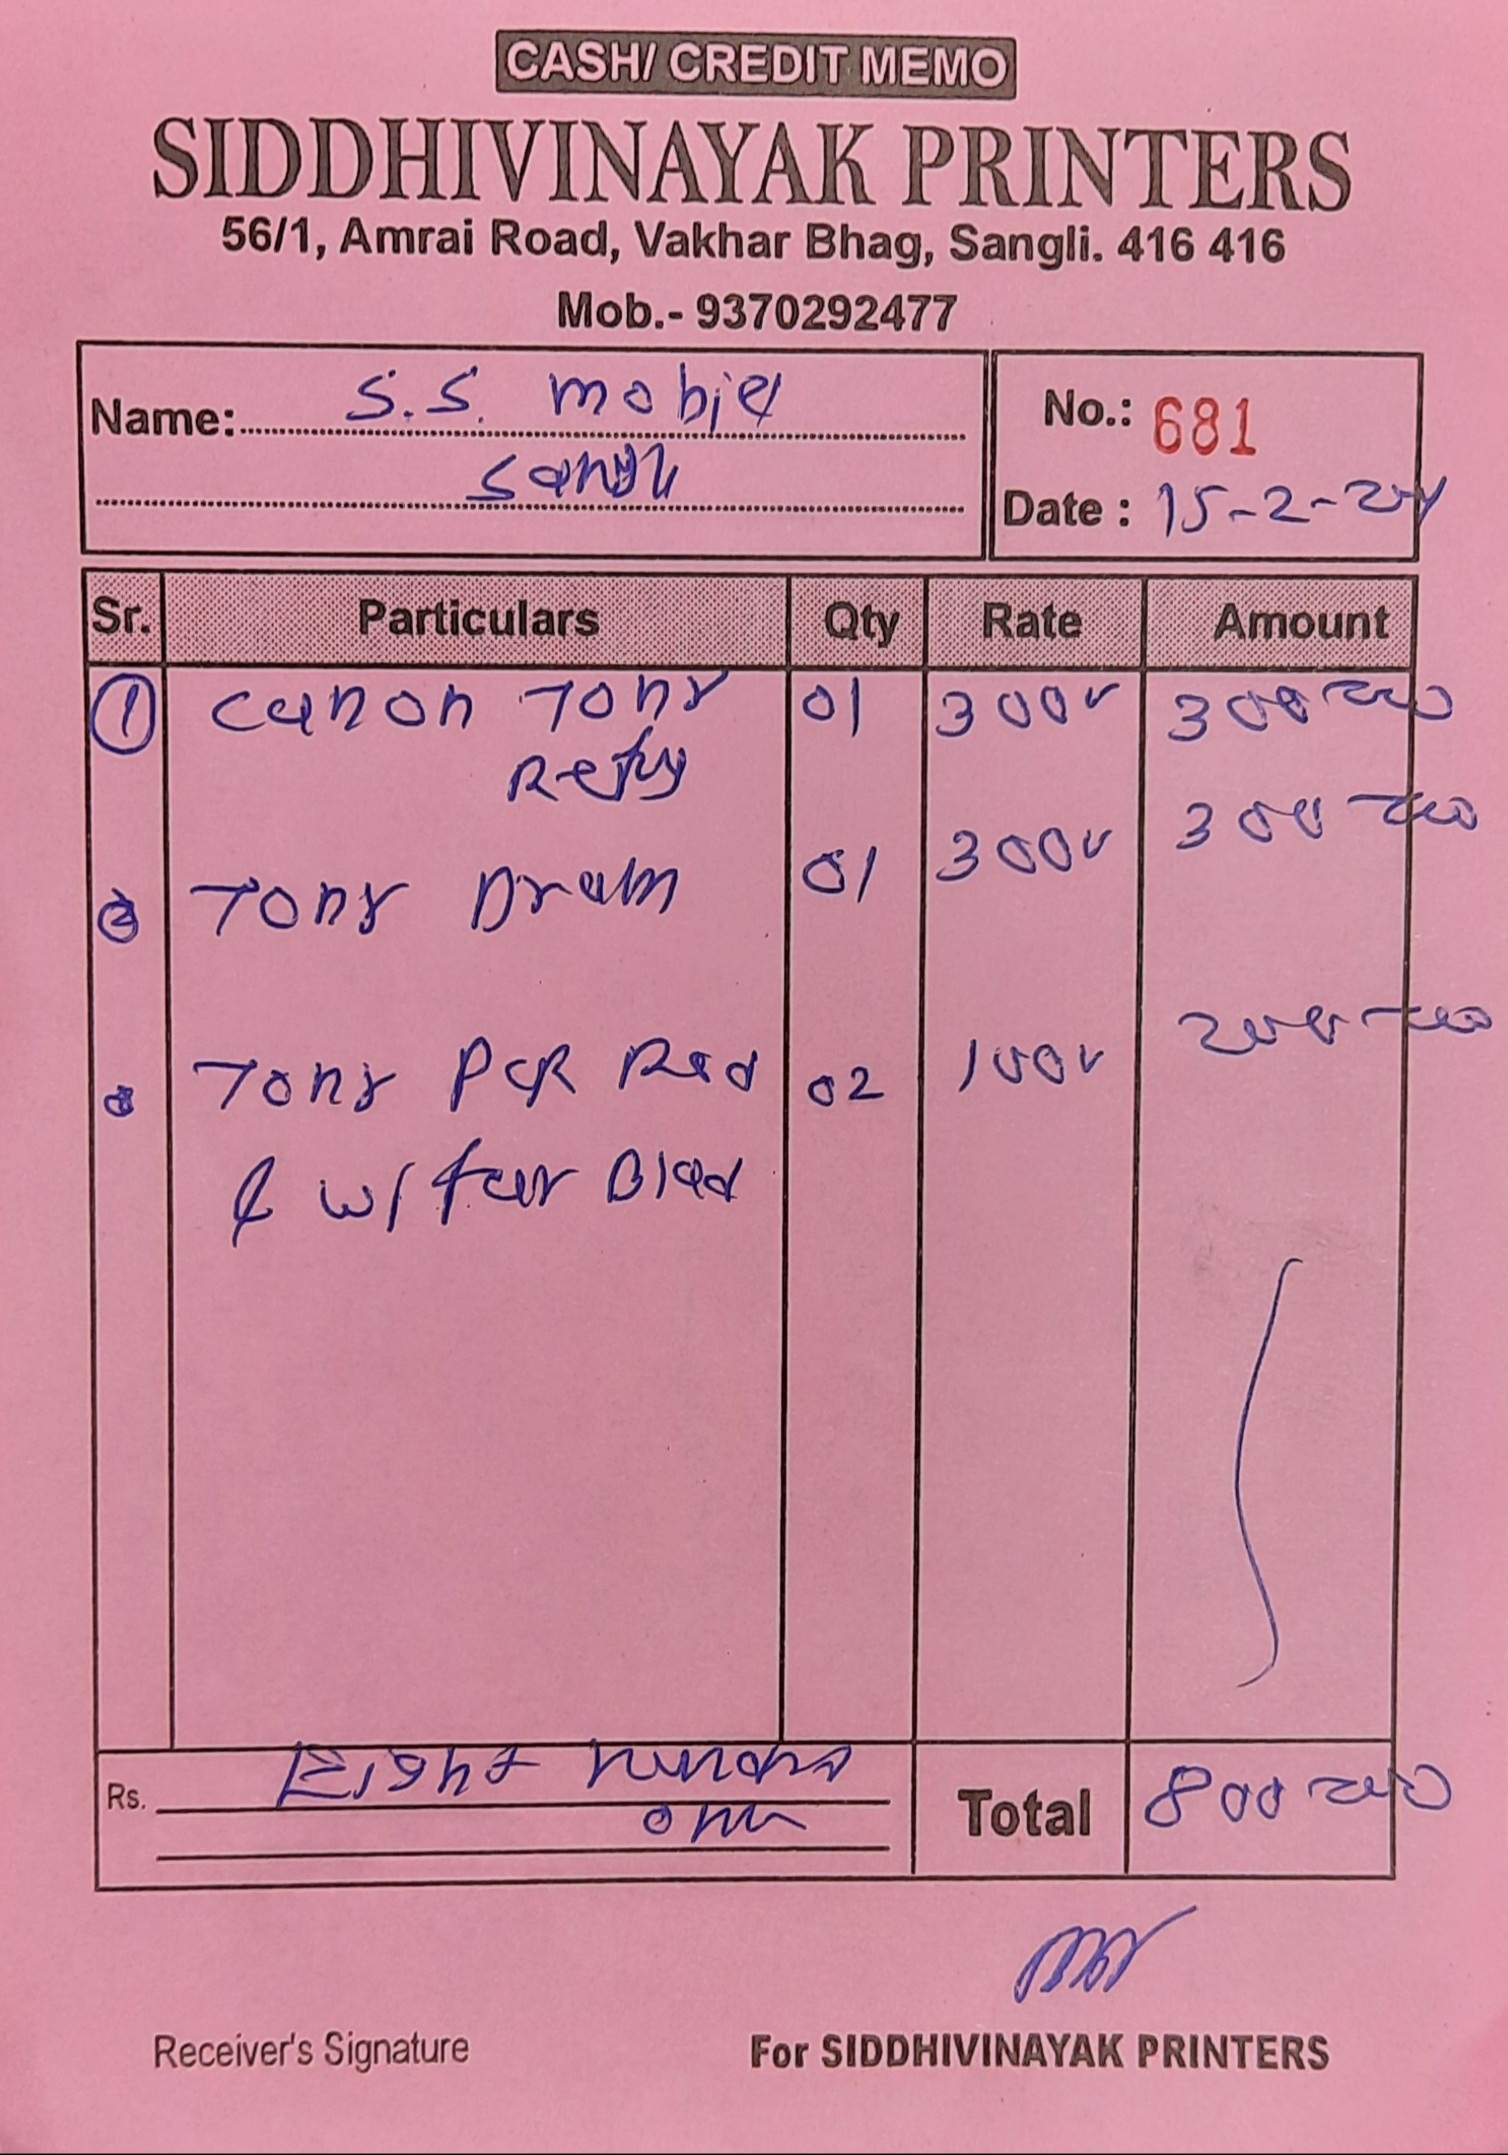 CASH/ CREDIT MEMO
SIDDHIVINAYAK PRINTERS
56/1, Amrai Road, Vakhar Bhag, Sangli. 416 416
Mob.- 9370292477
Name: S.S. mobie
No.: 681
Date : 15-2-24
Sr. Particulars Qty Rate Amount
1 Canon Toner 01 300 300
2 Toner Drum 01 300 300
Toner PCR Rod 02 100 200
& w/ Blad
Rs.
Total 800
Receiver's Signature
For SIDDHIVINAYAK PRINTERS